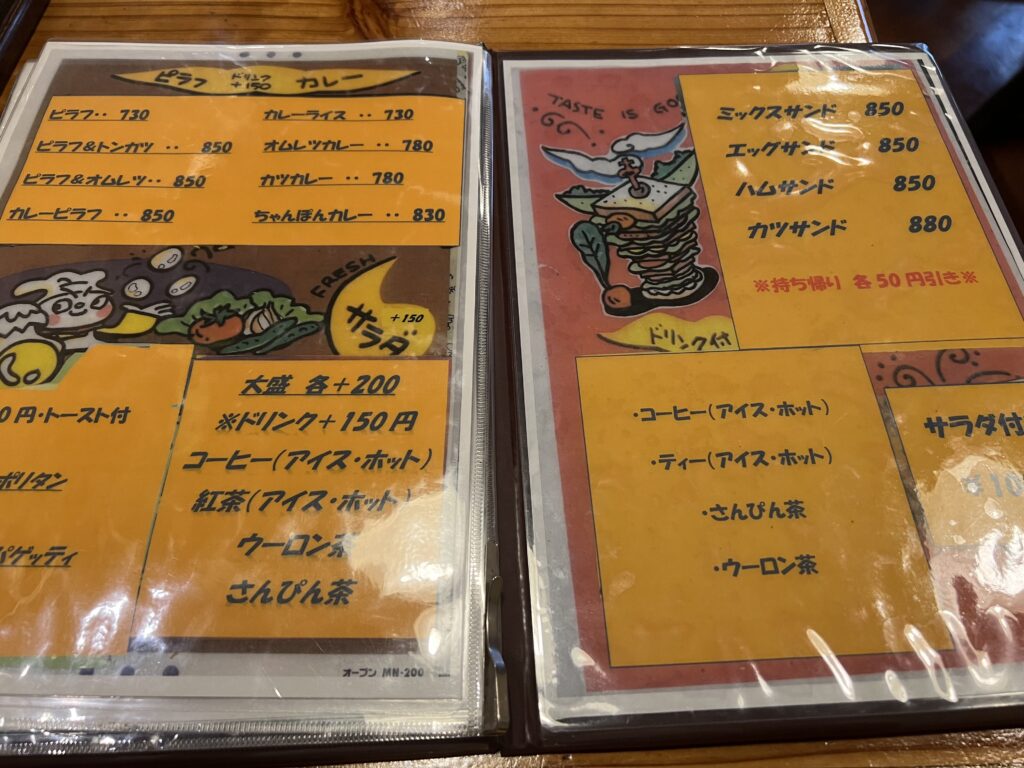 ピラフ ドリンク +150 カレー
ピラフ‥ 730
ピラフ&トンカツ ‥ 850
ピラフ&オムレツ‥ 850
カレーピラフ ‥ 850
カレーライス ‥ 730
オムレツカレー ‥ 780
カツカレー ‥ 780
ちゃんぽんカレー ‥ 830
FRESH
サラダ +150
0円・トースト付
ポリタン
パゲッティ
大盛 各+200
※ドリンク+150円
コーヒー(アイス・ホット)
紅茶(アイス・ホット)
ウーロン茶
さんぴん茶
オープン MN-200
TASTE IS GO
ミックスサンド 850
エッグサンド 850
ハムサンド 850
カツサンド 880
※持ち帰り 各50円引き※
ドリンク付
・コーヒー(アイス・ホット)
・ティー(アイス・ホット)
・さんぴん茶
・ウーロン茶
サラダ付